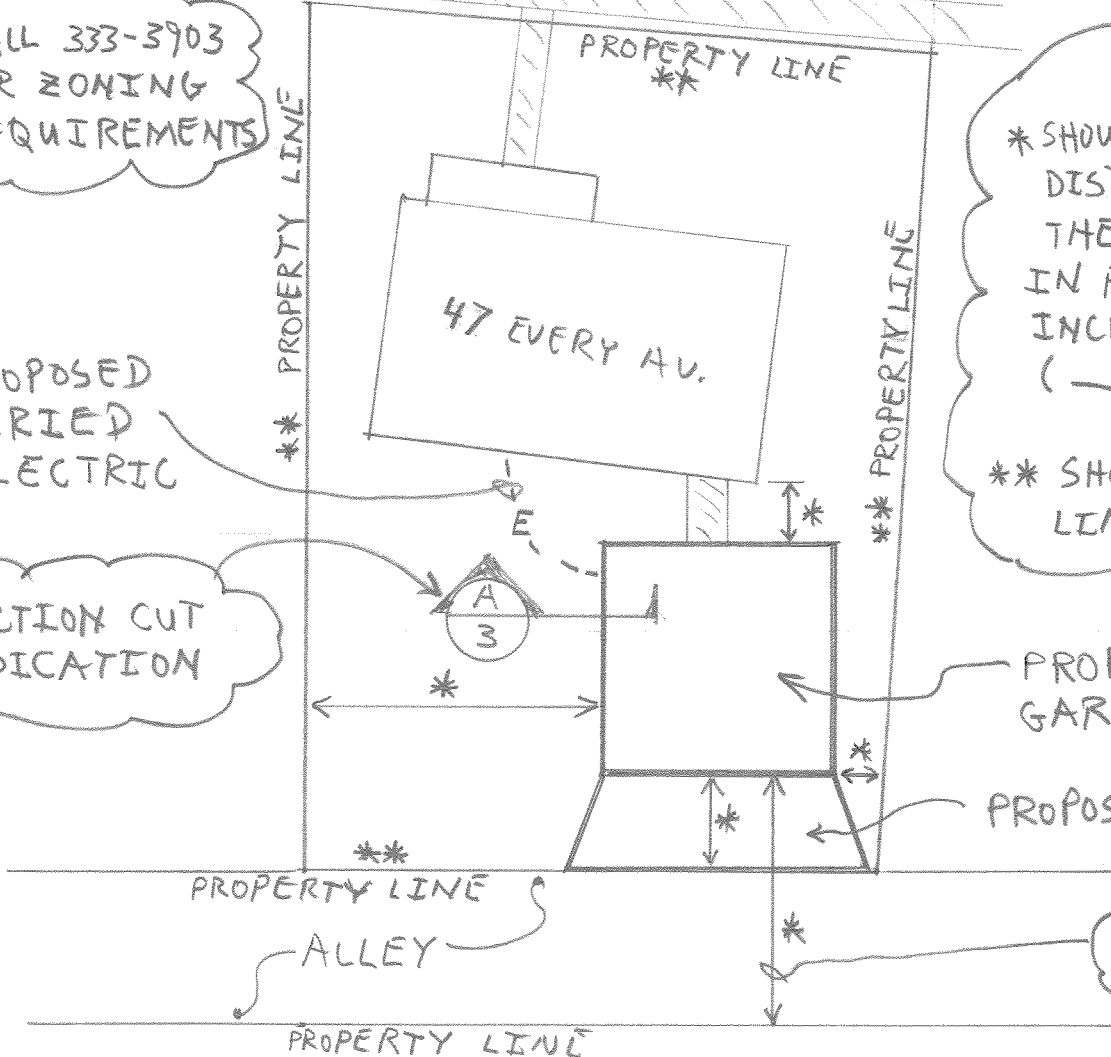 LL 333-3903
R ZONING
EQUIREMENTS
PROPERTY LINE
**
** PROPERTY LINE
** PROPERTY LINE
* SHOU
DIST
THE
IN
INC
( —
** SHO
LIN
47 EVERY AV.
OPOSED
RIED
LECTRIC
*
E
CTION CUT
DICATION
A
3
*
PROP
GAR
*
*
PROPOS
**
PROPERTY LINE
ALLEY
*
PROPERTY LINE